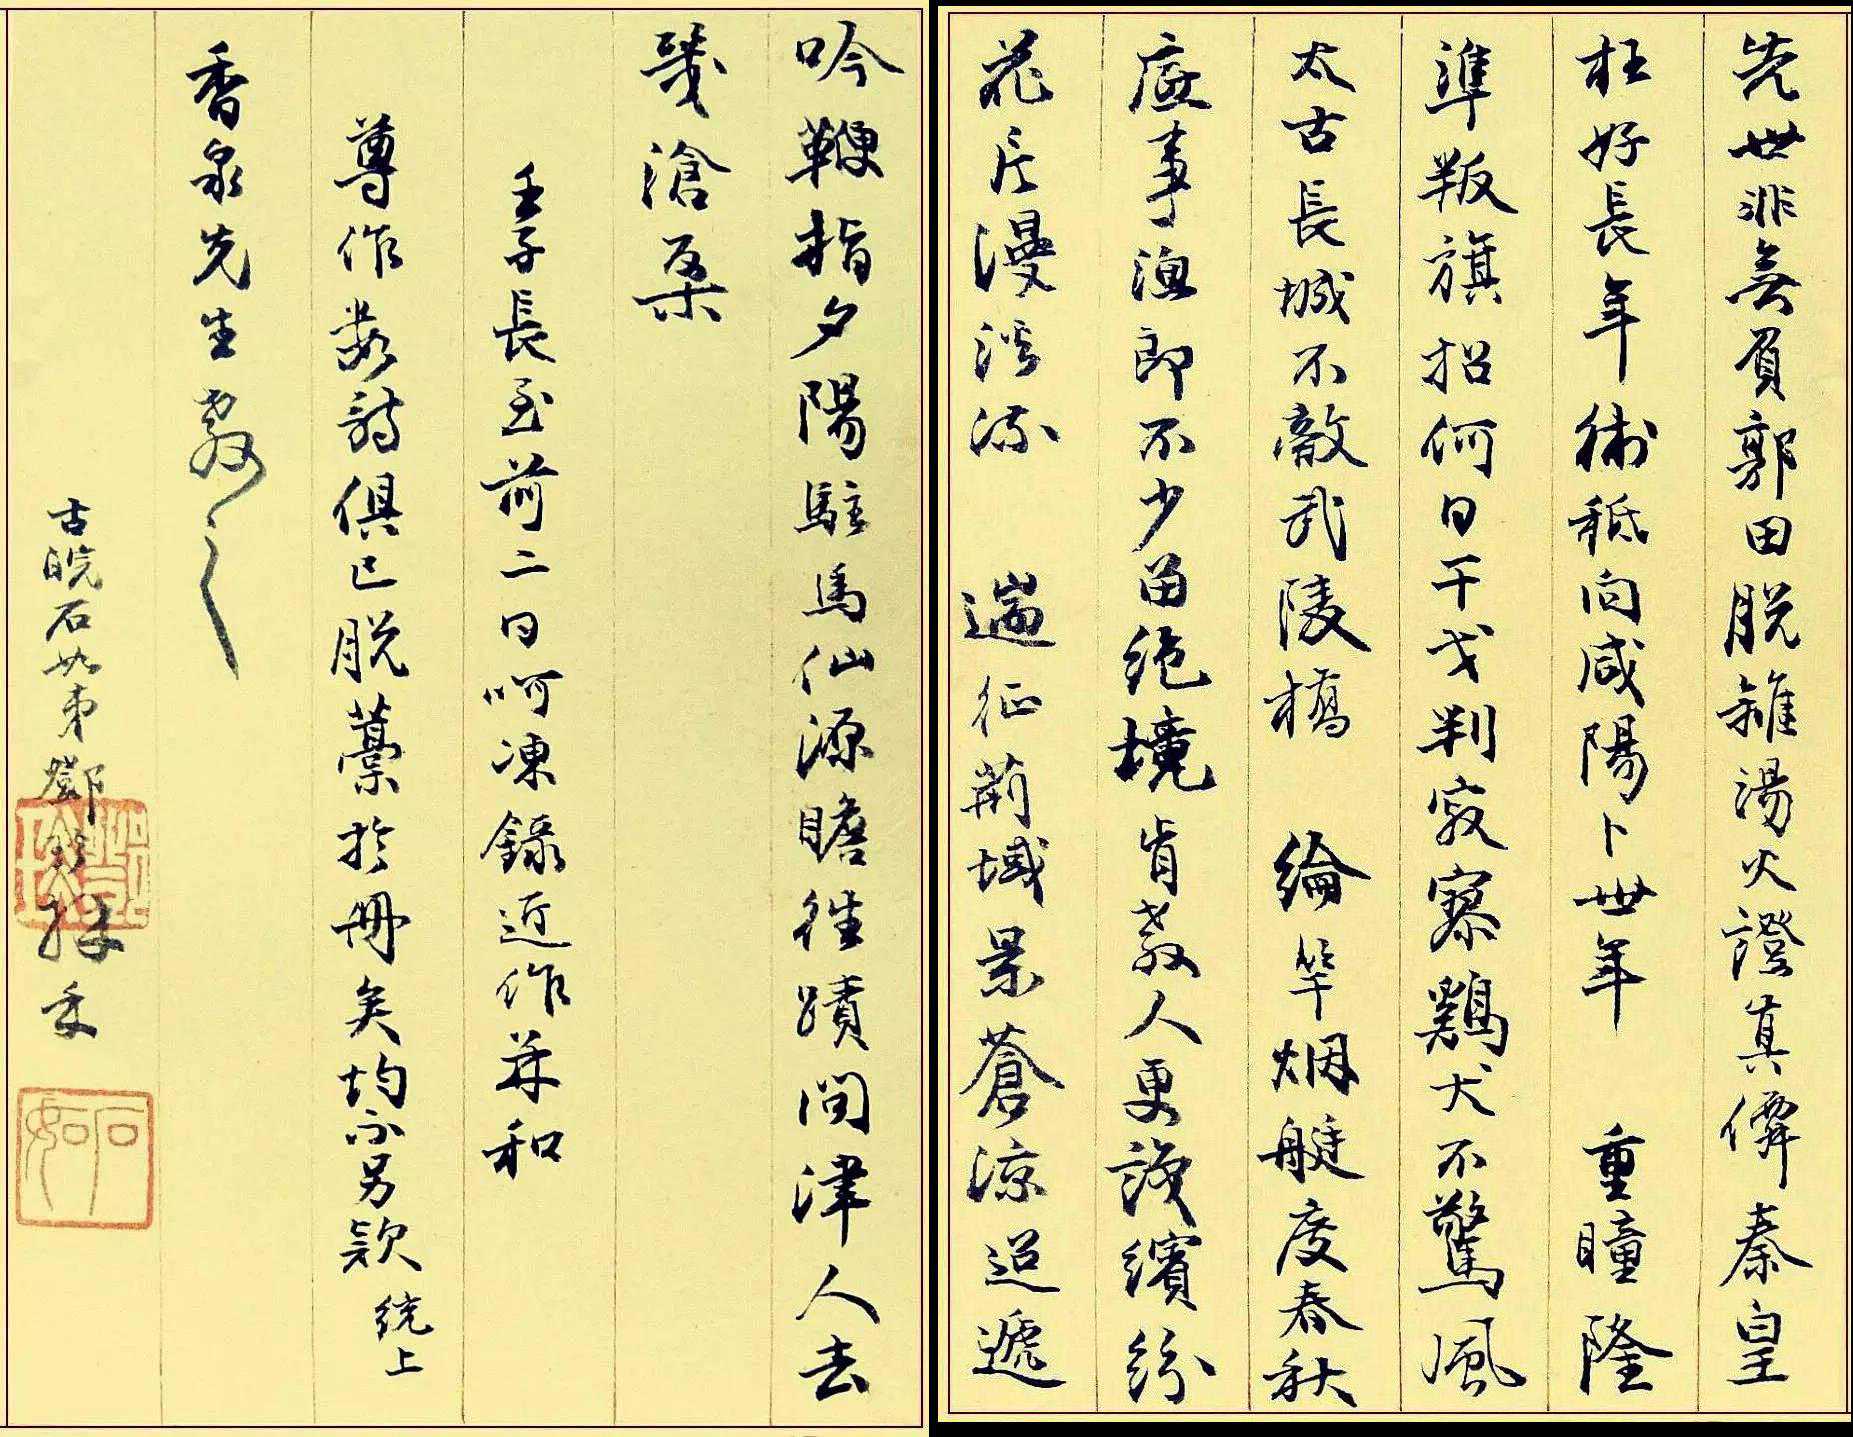 先世非無負郭田脱離湯火證真僊秦皇
枉好長年術秖向咸陽卜世年 重瞳隆
準叛旗招何日干戈判寂寥鷄犬不驚風
太古長城不敵武陵橋 綸竿烟艇度春秋
底事漁郎不少留絶境肯教人更誤繽紛
花片漫溪流 遄征荊域景蒼涼迢遞
吟鞭指夕陽駐馬仙源瞻徃蹟問津人去
幾滄桑
壬子長至前二日呵凍錄近作并和
尊作數詩俱已脱藁於冊矣均不另欵 統上
香泉先生教之
古皖石如弟鄧
石如